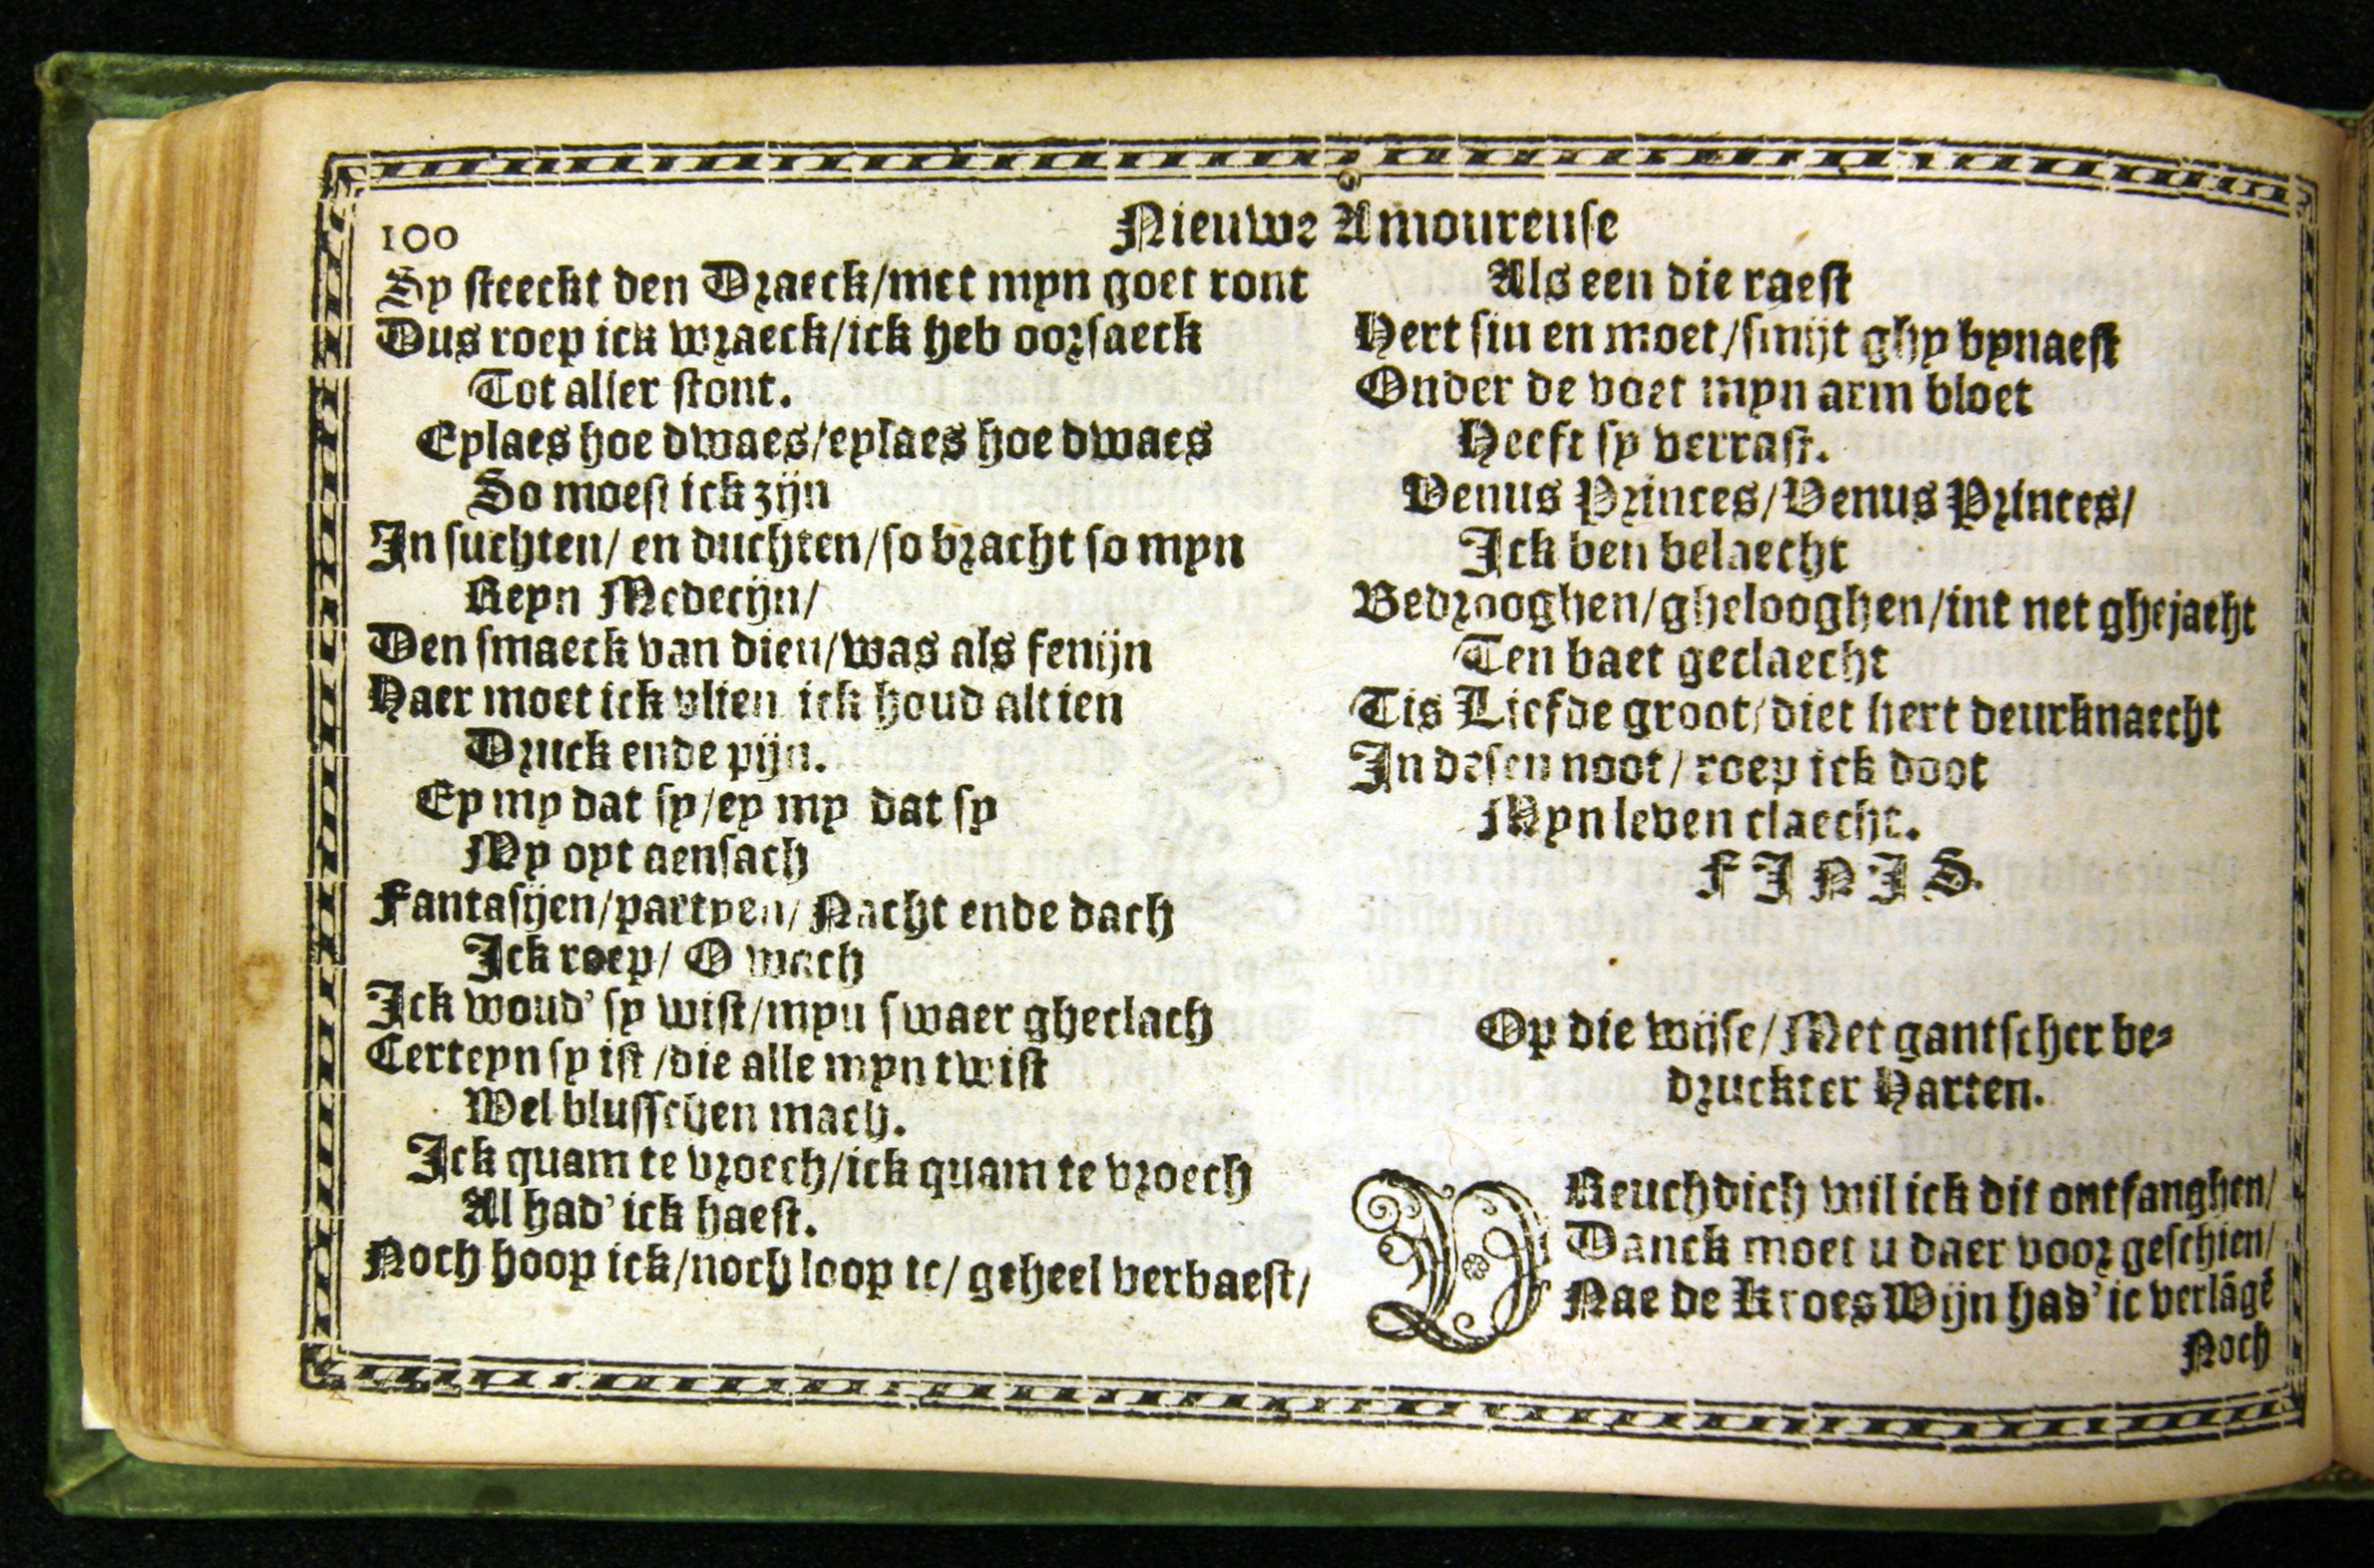 100
Nieuwe Amoureuse
Sy steeckt den Draeck/met myn goet ront
Dus roep ick wraeck/ick heb oorsaeck
Tot aller stont.
Eylaes hoe dwaes/eylaes hoe dwaes
So moest ick zijn
In suchten/ en duchten/so bracht so myn
Reyn Medecijn/
Den smaeck van dien/was als fenijn
Haer moet ick vlien ick houd altien
Druck ende pijn.
Ey my dat sy/ey my dat sy
My oyt aensach
Fantasijen/partyen/ Nacht ende dach
Ick roep/ O wach
Ick woud' sy wist/myn swaer gheclach
Certeyn sy ist/die alle myn twist
Wel blusschen mach.
Ick quam te vroech/ick quam te vroech
Al had' ick haest.
Noch hoop ick/noch loop ic/ geheel verbaest/
Als een die raest
Hert sin en moet/smijt ghy bynaest
Onder de voet myn arm bloet
Heeft sy verrast.
Venus Princes/Venus Princes/
Ick ben belaecht
Bedrooghen/ghelooghen/int net ghejaeht
Ten baet geclaecht
Tis Liefde groot/diet hert deurknaecht
In desen noot/roep ick doot
Myn leven claecht.
FINIS.
Op die wijse/Met gantscher be-
druckter Harten.
VReuchdich wil ick dit ontfanghen/
Danck moet u daer voor geschien/
Nae de Kroes Wijn had' ic verlãgẽ
Noch